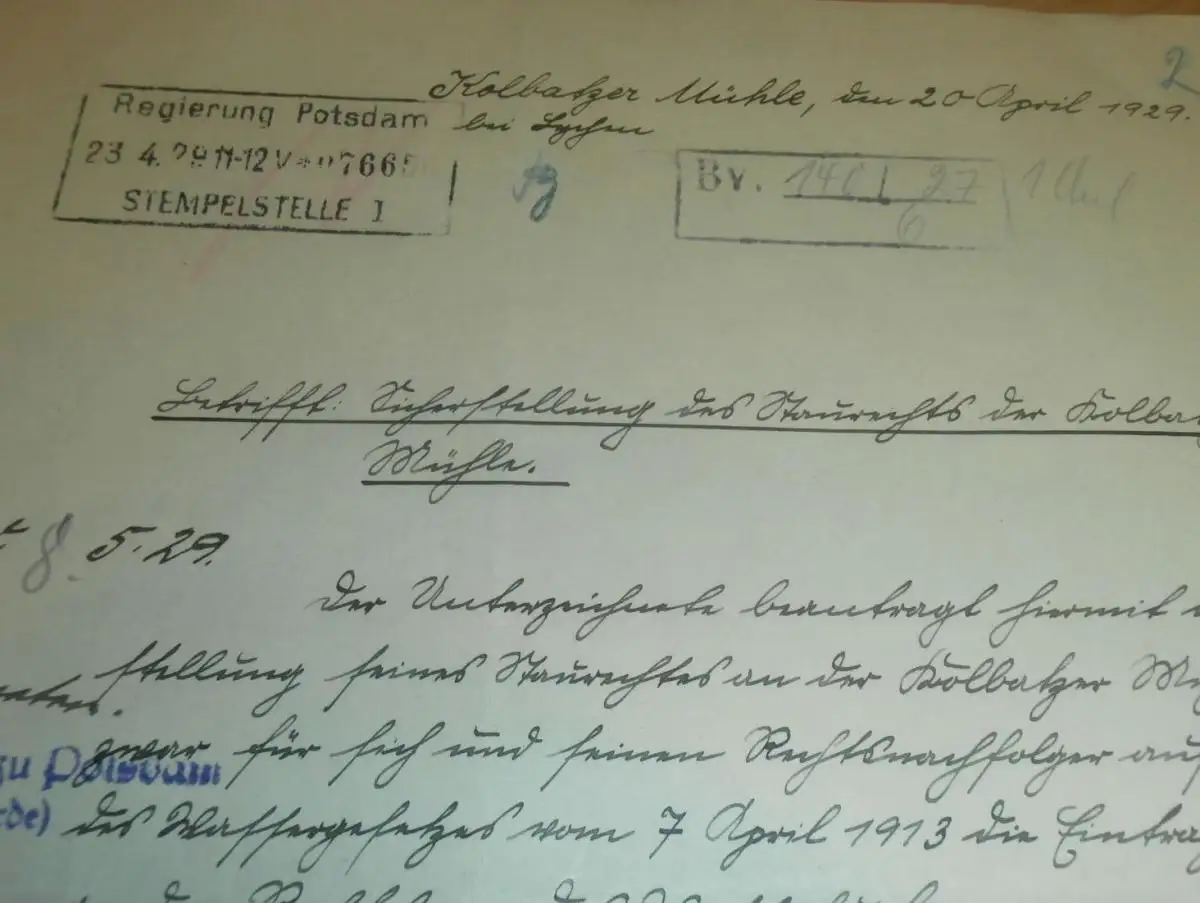 2
Kolbatzer Mühle, den 20 April 1929.
bei Lychen
Regierung Potsdam
23 4. 29 11-12 V 07665
STEMPELSTELLE 1
Bv. 27
6
Betrifft: Sicherstellung des Staurechts der Kolba
Mühle.
8. 5. 29.
Der Unterzeichnete beantragt hiermit
stellung seines Staurechtes an der Kolbatzer Mü
zwar für sich und seinen Rechtsnachfolger auf
zu Potsdam
des Wassergesetzes vom 7 April 1913 die Eintra
rde)